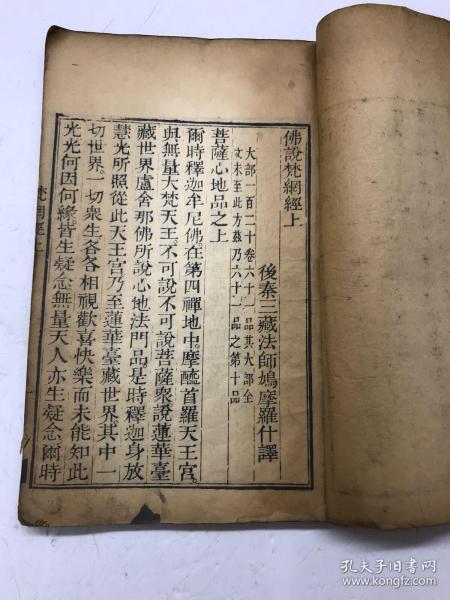 佛說梵網經上
後秦三藏法師鳩摩羅什譯
大部一百二十卷六十一品其大部全
文未至此方茲乃六十一品之第十品
菩薩心地品之上
爾時釋迦牟尼佛在第四禪地中摩醯首羅天王宮
與無量大梵天王不可說不可說菩薩衆說蓮華臺
藏世界盧舍那佛所說心地法門品是時釋迦身放
慧光所照從此天王宮乃至蓮華臺藏世界其中一
切世界一切衆生各各相視歡喜快樂而未能知此
光光何因何緣皆生疑念無量天人亦生疑念爾時
梵網經上
孔夫子旧书网
www.kongfz.com